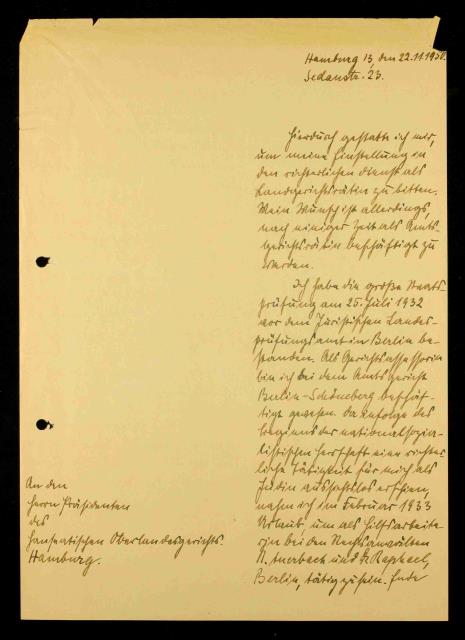 Hamburg 13, den 22.11.1950.
Sedanstr. 23.
Hierdurch gestatte ich mir,
um meine Einstellung in
den richterlichen Dienst als
Landgerichtsrätin zu bitten.
Mein Wunsch ist allerdings,
nach einiger Zeit als Amts-
gerichtsrätin beschäftigt zu
werden.
Ich habe die große Staats-
prüfung am 25. Juli 1932
vor dem Juristischen Landes-
prüfungsamt in Berlin be-
standen. Als Gerichtsassessorin
bin ich bei dem Amtsgericht
Berlin-Schöneberg beschäf-
tigt gewesen. Da infolge des
Beginns der nationalsozia-
listischen Herrschaft eine richter-
liche Tätigkeit für mich als
Jüdin aussichtslos erschien,
nahm ich im Februar 1933
Urlaub, um als Hilfsarbeite-
rin bei den Rechtsanwälten
N. Auerbach und Dr Raphael,
Berlin, tätig zu sein. Ende
An den
Herrn Präsidenten
des
Hanseatischen Oberlandesgerichts.
Hamburg.